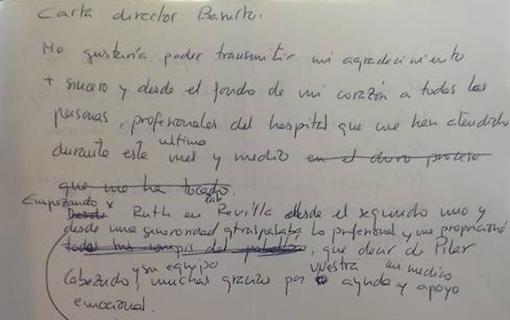 Carta director Basurto.
Me gustaría poder transmitir mi agradecimiento
+ sincero y desde el fondo de mi corazón a todas las
personas, profesionales del hospital que me han atendido
durante este ultimo mes y medio en el duro proceso
que me ha tocado.
Empezando x Ruth en Revilla desde el segundo uno y
desde una generosidad lo profesional y me proporcionó
todas del pabellón, que decir de Pilar
Cabezudo y su equipo, muchas gracias por vuestra ayuda y apoyo mi medico
emocional.